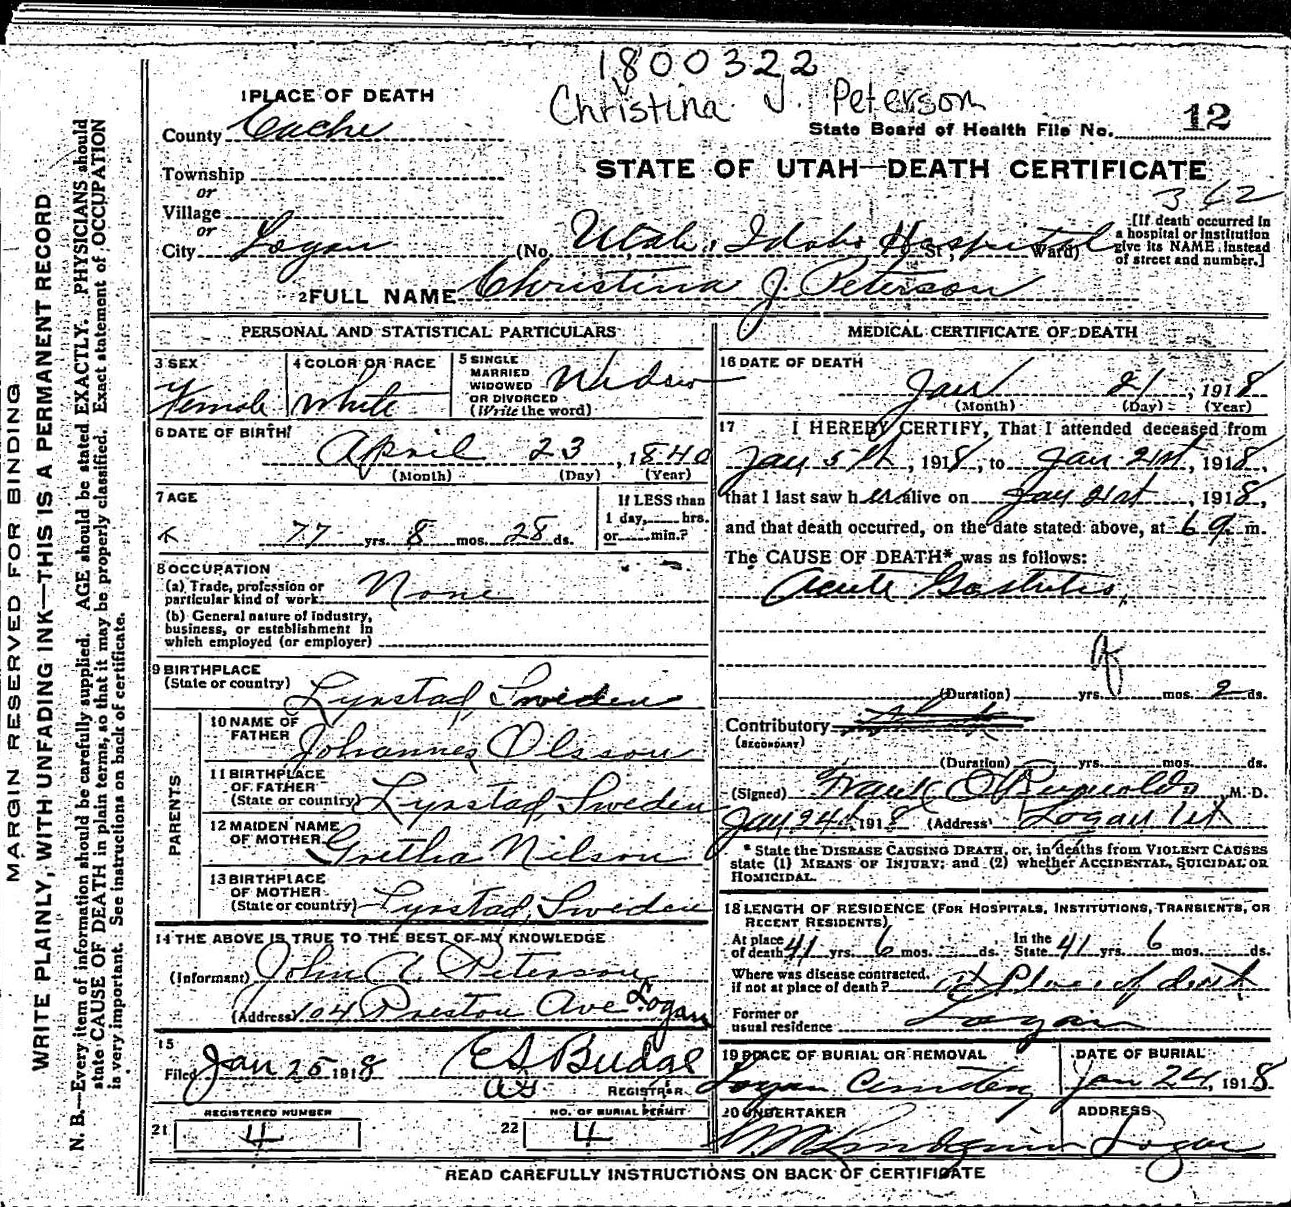 1800322
Christina J. Peterson
1 PLACE OF DEATH
County Cache
State Board of Health File No. 12
Township
or
Village
or
City Logan
STATE OF UTAH—DEATH CERTIFICATE
362
(No. Utah. Idaho Hospital St., Ward)
[If death occurred in
a hospital or institution
give its NAME instead
of street and number.]
2 FULL NAME Christina J. Peterson
PERSONAL AND STATISTICAL PARTICULARS
3 SEX
Female
4 COLOR OR RACE
White
5 SINGLE
MARRIED
WIDOWED
OR DIVORCED
(Write the word)
Widow
6 DATE OF BIRTH
April 23, 1840
(Month) (Day) (Year)
7 AGE
77 yrs. 8 mos. 28 ds.
If LESS than
1 day, hrs.
or min.?
8 OCCUPATION
(a) Trade, profession or
particular kind of work None
(b) General nature of industry,
business, or establishment in
which employed (or employer)
9 BIRTHPLACE
(State or country) Lynstad, Sweden
PARENTS
10 NAME OF
FATHER Johannes Olsson
11 BIRTHPLACE
OF FATHER
(State or country) Lynstad, Sweden
12 MAIDEN NAME
OF MOTHER Gretha Nilson
13 BIRTHPLACE
OF MOTHER
(State or country) Lynstad, Sweden
14 THE ABOVE IS TRUE TO THE BEST OF MY KNOWLEDGE
(Informant) John A Peterson
(Address 104 Preston Ave Logan
15
Filed Jan 25 1918
REGISTRAR
REGISTERED NUMBER
21 4
NO. OF BURIAL PERMIT
22 4
MEDICAL CERTIFICATE OF DEATH
16 DATE OF DEATH
Jan 21, 1918
(Month) (Day) (Year)
17 I HEREBY CERTIFY, That I attended deceased from
Jan 5th, 1918, to Jan 21st, 1918,
that I last saw her alive on Jan 21st, 1918,
and that death occurred, on the date stated above, at 6 a. m.
The CAUSE OF DEATH* was as follows:
Acute Gastritis,
(Duration) yrs. mos. 2 ds.
Contributory
(SECONDARY)
(Duration) yrs. mos. ds.
(Signed) Frank O Reynolds M. D.
Jan 24th 1918 (Address) Logan Ut
* State the DISEASE CAUSING DEATH, or, in deaths from VIOLENT CAUSES
state (1) MEANS OF INJURY; and (2) whether ACCIDENTAL, SUICIDAL OR
HOMICIDAL.
18 LENGTH OF RESIDENCE (FOR HOSPITALS, INSTITUTIONS, TRANSIENTS, OR
RECENT RESIDENTS)
At place
of death 41 yrs. 6 mos. ds. In the
State 41 yrs. 6 mos. ds.
Where was disease contracted,
if not at place of death? at Place of death
Former or
usual residence Logan
19 PLACE OF BURIAL OR REMOVAL
Logan Cemetery
DATE OF BURIAL
Jan 24, 1918
20 UNDERTAKER
ADDRESS
Logan
READ CAREFULLY INSTRUCTIONS ON BACK OF CERTIFICATE
MARGIN RESERVED FOR BINDING
WRITE PLAINLY, WITH UNFADING INK—THIS IS A PERMANENT RECORD
N. B.—Every item of information should be carefully supplied. AGE should be stated EXACTLY. PHYSICIANS should
state CAUSE OF DEATH in plain terms, so that it may be properly classified. Exact statement of OCCUPATION
is very important. See instructions on back of certificate.